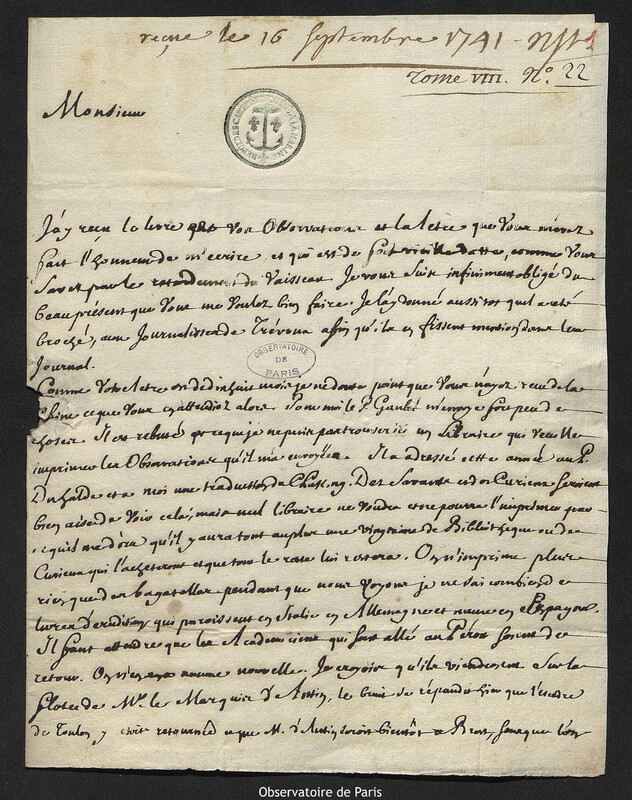 reçue le 16 Septembre 1741 -
Tome VIII. N.º 22
Monsieur
J'ay reçu le livre de vos Observations et la letre que Vous m'avez
fait l'honneur de m'ecrire, et qui est de fort vieille datte, comme Vous
Savez par le retardement du Vaisseau. Je vous suis infiniment obligé du
beau présent que Vous me Voulez bien faire. Je l'ay donné aussi tot qu'il a eté
broché, aux Journalistes de Trévoux afin qu'ils en fissent mention dans leur
Journal.
OBSERVATOIRE
DE
PARIS
Comme Votre letre est de dix huit mois je ne doute point que Vous n'ayez reçu de la
Chine ce que Vous en attendiez alors. Pour moi le P. Gaubil m'envoye fort peu de
choses. Il est rebuté de ce que je ne puis pas trouver ici un Libraire qui veuille
imprimer les Observations qu'il m'a envoyées. Il a adressé cette année au P.
Duhalde et a moi une traduction du Chuking. Des Savants et des Curieux seroient
bien aises de Voir cela, mais nul libraire ne Voudra et ne pourra l'imprimer par
ce qu'il me dira qu'il y aura tout au plus une Vingtaine de Bibliotheques ou de
Curieux qui l'acheteront et que tout le reste lui restera. On n'imprime plus
rien que des bagatelles pendant que nous Voyons je ne sai combien de
livres d'erudition qui paroissent en Italie en Allemagne et meme en Espagne.
Il faut attendre que les Academiciens qui sont allé au Pérou soient de
retour. On n'en a aucune nouvelle. Je croyois qu'ils viendroient Sur la
flote de Mr. le Marquis d'Antin, le bruit se répandit hier que l'escadre
de Toulon y etoit retournée et que M. d'Antin seroit bientôt a Brest, sans que l'on
Observatoire de Paris